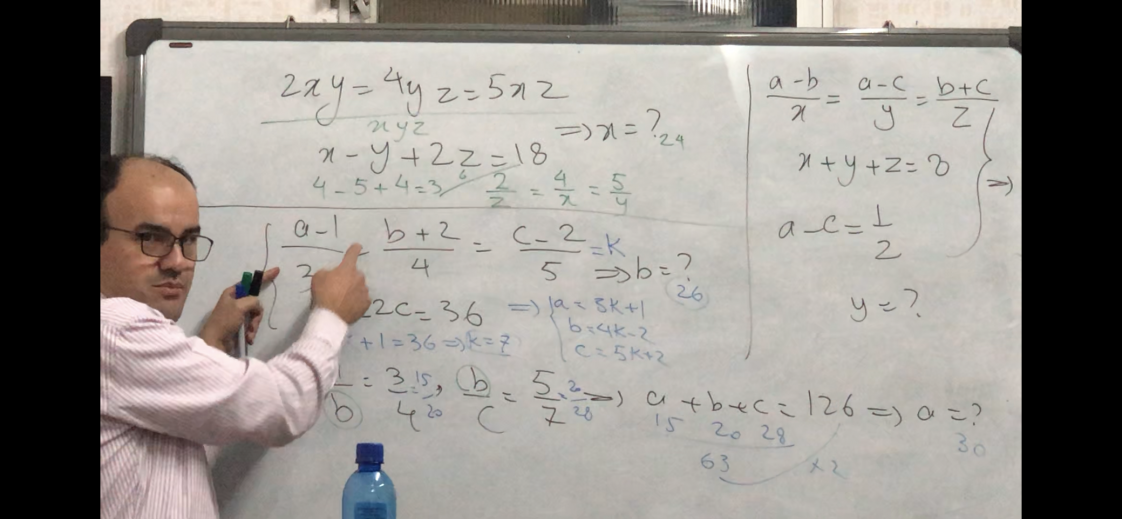 2xy = 4yz = 5xz
xyz
⇒ x = ? 24
x - y + 2z = 18
4 - 5 + 4 = 3 6 2/z = 4/x = 5/y
a-1/3 = b+2/4 = c-2/5 = k
⇒ b = ? 26
2c = 36 ⇒ a = 3k+1
b = 4k-2
+1 = 36 ⇒ k = 7 c = 5k+2
/b = 3/4 = 15/20, b/c = 5/7 = 20/28 ⇒ a + b + c = 126 ⇒ a = ?
15 20 28 30
63 ×2
a-b/x = a-c/y = b+c/z
x + y + z = 8
⇒
a - c = 1/2
y = ?